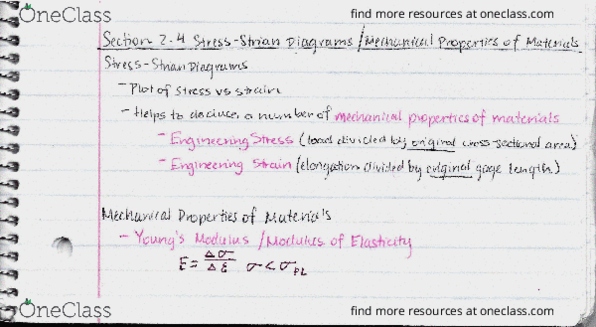 OneClass
find more resources at oneclass.com
Section 2.4 Stress-Strian Diagrams / Mechanical Properties of Materials
Stress-Strian Diagrams
- Plot of Stress vs strain
- Helps to deduce a number of mechanical properties of materials
- Engineering Stress (load divided by original cross-sectional area)
- Engineering Strain (elongation divided by original gage length)
Mechanical Properties of Materials
- Young's Modulus / Modulus of Elasticity
E = Δσ/Δε σ < σPL
OneClass
find more resources at oneclass.com